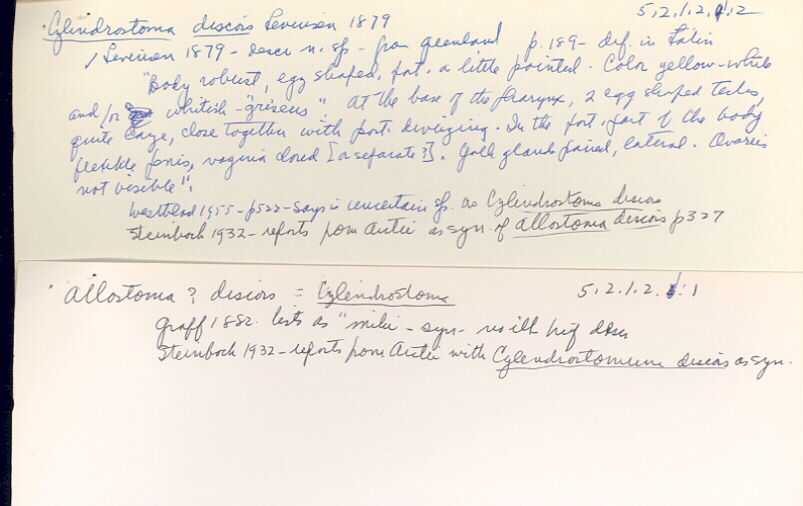 Cylindrostoma discors Levinsen 1879 5.2.1.2.1.2
Levinsen 1879 - descr n. sp - from Greenland p. 189 - def. in Latin
"Body robust, egg shaped, post. a little pointed. Color yellow-white
and/or whitish - "griseus". At the base of the pharynx, 2 egg shaped testes,
quite large, close together with post. diverging. In the post. part of the body
flexible penis, vagina closed [or separate?]. Yolk glands paired, lateral. Ovaries
not visible".
Westblad 1955 - p522 - says is uncertain sp. as Cylindrostoma discors
Steinbock 1932 - reports from Arctic as syn. of Allostoma discors p 327
Allostoma ? discors = Cylindrostoma 5.2.1.2. 1
Graff 1882. lists as "mihi - syn - no ill. brief descr
Steinbock 1932 - reports from Arctic with Cylindrostomum discors as syn.